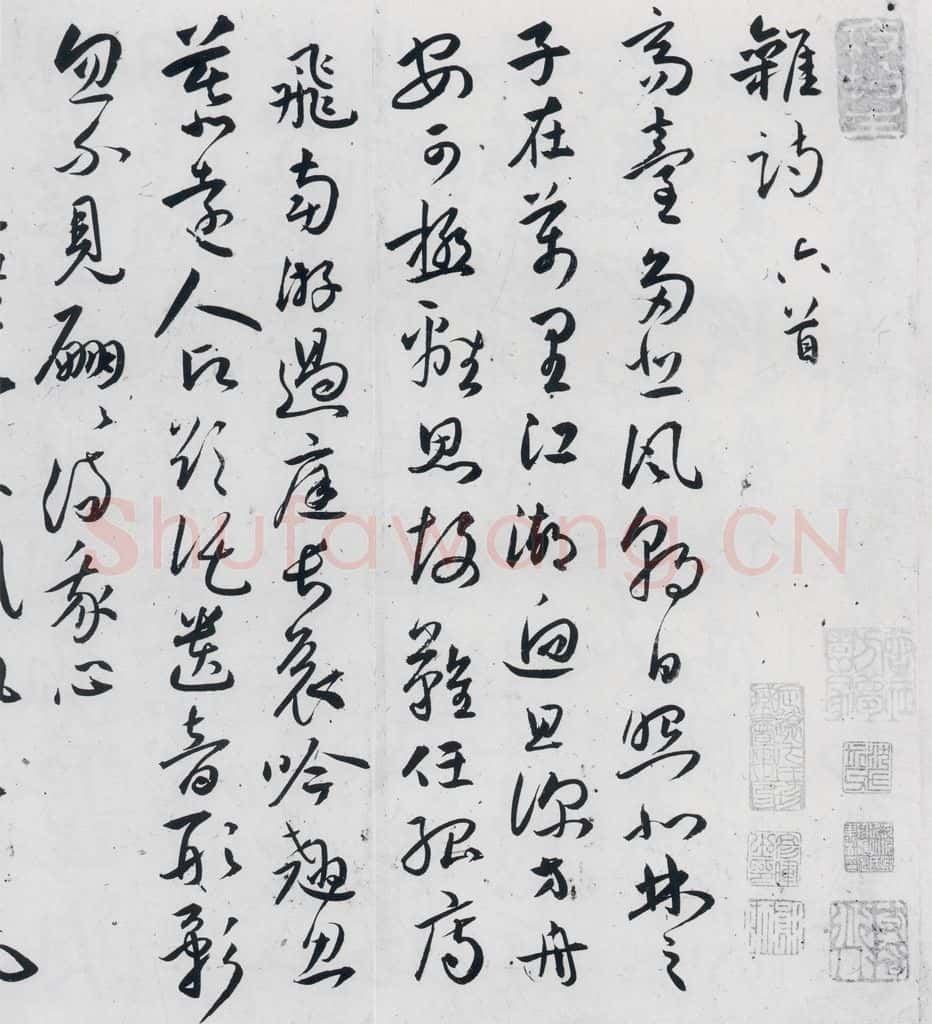 雜詩六首
高臺多悲風朝日照北林之
子在萬里江湖迥且深方舟
安可極離思故難任孤鴈
飛南游過庭長哀吟翹思
慕遠人願欲託遺音形影
忽不見翩々傷我心
Shufawang.CN